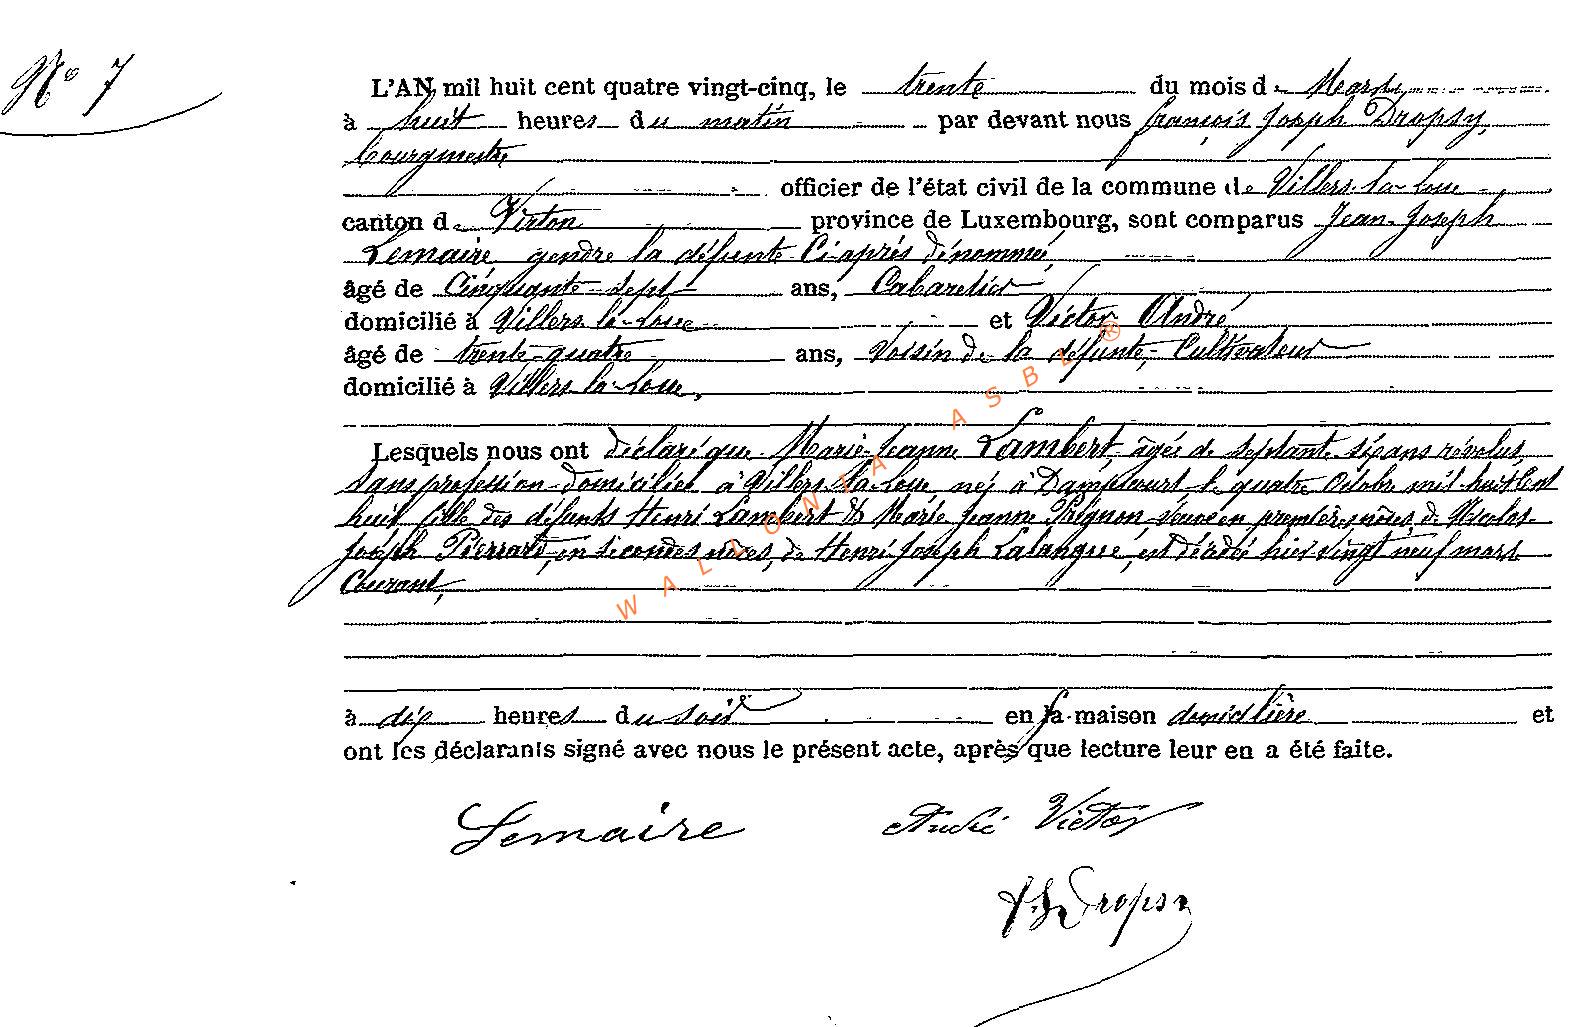 N° 7
L'AN mil huit cent quatre vingt-cinq, le trente du mois de Mars,
à huit heures du matin par devant nous françois Joseph Dropsy,
bourgmestre
officier de l'état civil de la commune de Villers-la-Loue,
canton de Virton province de Luxembourg, sont comparus Jean-Joseph
Lemaire, gendre la défunte Ci-après dénommé,
âgé de Cinquante-sept ans, Cabaretier
domicilié à Villers-la-Loue et Victor André,
âgé de trente-quatre ans, Voisin de la défunte, Cultivateur
domicilié à Villers-la-Loue,
Lesquels nous ont déclaré que Marie-Jeanne Lambert, âgée de septante-six ans révolus,
sans profession domiciliée à Villers-la-Loue, née à Dampicourt le quatre Octobre mil huit Cent
huit, fille des défunts Henri Lambert & Marie Jeanne Pignon, Veuve en premières noces, de Nicolas-
Joseph Pierrard, en secondes noces, de Henri-Joseph Lalangue, est décédée hier vingt neuf mars
Courant,
à dix heures du soir en sa maison domicilière et
ont les déclarants signé avec nous le présent acte, après que lecture leur en a été faite.
Lemaire
André Victor
Dropsy
WALLONIA ASBL ®